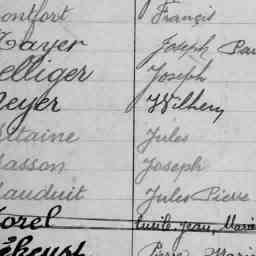 ontfort Francis
Kayer Joseph Pau
elliger Joseph
eyer Wilhem
itaine Jules
asson Joseph
auduit Jules Pierre
orel Emile, Jean, Marie
Pierre Marie